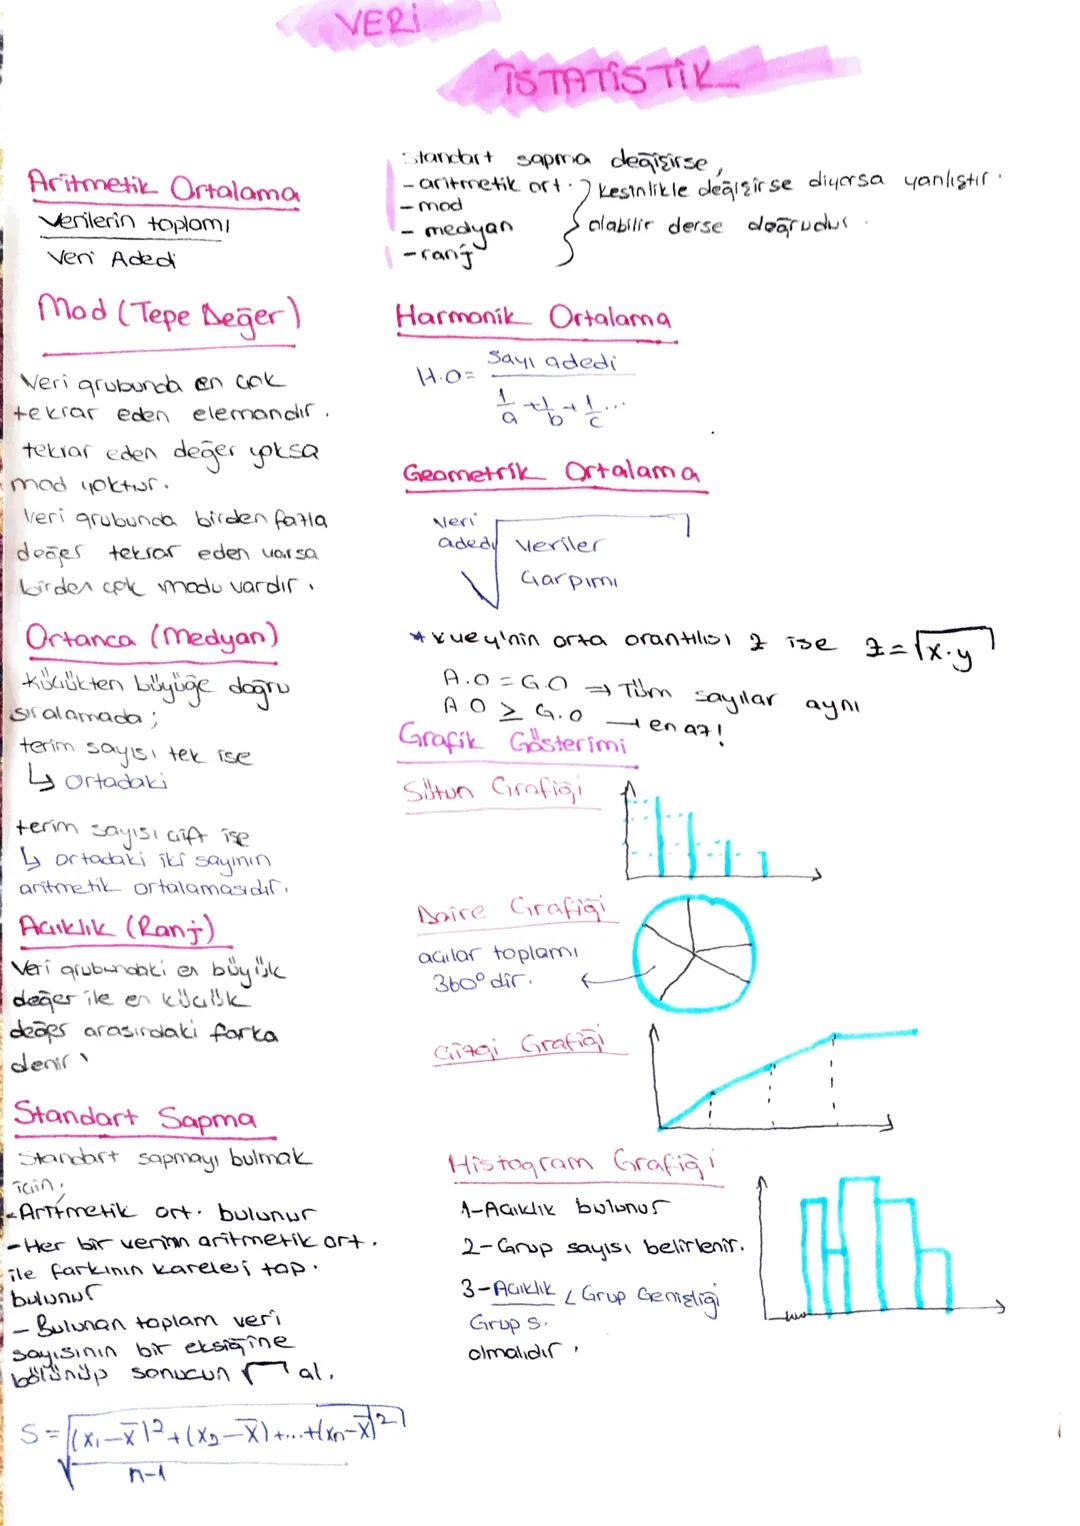 VERİ
İSTATİSTİK
Aritmetik Ortalama
Verilerin toplamı
Veri Adedi
Mod (Tepe Değer)
Veri grubunda en çok
tekrar eden elemandır.
tekrar eden değer yoksa
mod yoktur.
Veri grubunda birden fazla
değer tekrar eden varsa
birden çok modu vardır.
Ortanca (Medyan)
Küçükten büyüğe doğru
sıralamada;
terim sayısı tek ise
↳ ortadaki
terim sayısı çift ise
↳ ortadaki iki sayının
aritmetik ortalamasıdır.
Açıklık (Ranj)
Veri grubundaki en büyük
değer ile en küçük
değer arasındaki farka
denir
Standart Sapma
Standart sapmayı bulmak
için;
- Aritmetik ort. bulunur
- Her bir verinin aritmetik ort.
ile farkının kareleri top.
bulunur
- Bulunan toplam veri
sayısının bir eksiğine
bölünüp sonucun √ al.
S = √((x₁-x̄)² + (x₂-x̄) + ... + (xn-x̄)²
n-1
Standart sapma değişirse,
- aritmetik ort.
- mod
- medyan
- ranj
kesinlikle değişirse diyorsa yanlıştır.
olabilir derse doğrudur.
Harmonik Ortalama
H.O = Sayı adedi
1/a + 1/b + 1/c ...
Geometrik Ortalama
Veri
adedi √ Veriler
Çarpımı
* x ve y'nin orta orantılısı z ise z = √x·y
A.O = G.O ⇒ Tüm sayılar aynı
A.O ≥ G.O → en az!
Grafik Gösterimi
Sütun Grafiği
Daire Grafiği
açılar toplamı
360° dir.
Çizgi Grafiği
Histogram Grafiği
1-Açıklık bulunur
2-Grup sayısı belirlenir.
3-Açıklık < Grup Genişliği
Grup s.
olmalıdır.